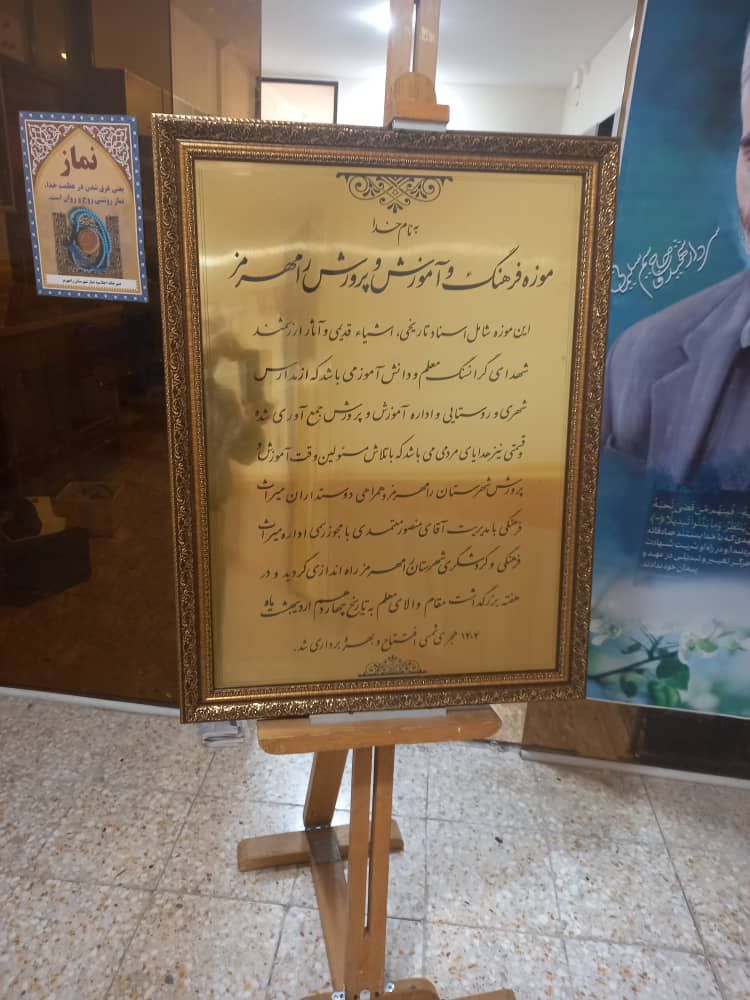 به نام خدا
موزه فرهنگ و آموزش و پرورش رامهرمز
این موزه شامل اسناد تاریخی، اشیاء قدیمی و آثار ارزشمند
شهدای گرانسنگ معلم و دانش آموز می باشد که از مدارس
شهری و روستایی و اداره آموزش و پرورش جمع آوری شده
و قسمتی نیز هدایای مردمی می باشد که با تلاش مسئولین وقت آموزش و
پرورش شهرستان رامهرمز و همراهی دوستداران میراث
فرهنگی با مدیریت آقای منصور معتمدی با مجوز از اداره میراث
فرهنگی و گردشگری شهرستان رامهرمز راه اندازی گردید و در
هفته بزرگداشت مقام والای معلم به تاریخ چهاردهم اردیبهشت ماه
هجری شمسی افتتاح و بهره برداری شد.
نماز
یعنی غرق شدن در عظمت خدا.
نماز روشنی روح و روان است.
دبیرخانه اجلاسیه نماز شهرستان رامهرمز
سردار حاج قاسم سلیمانی